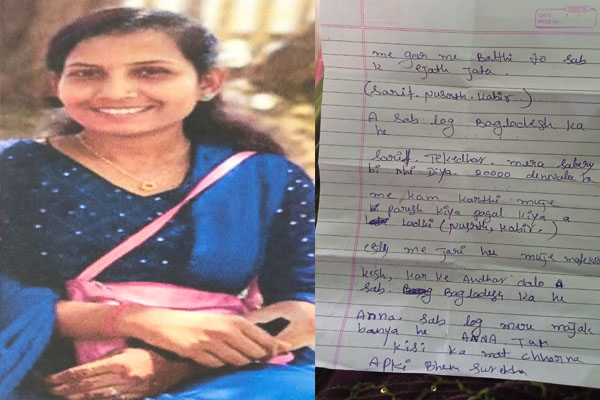 DATE
PAGE NO.
me gour me Balthi Jo sab
k sath Jata.
(Sarif. Nusrath. Kabir.)
A sab log Bagladesh ka
he
Sariff Tekedhar. mera salary
bi nhi Diya. 20000 denivalle
me kam karthi muje
paresh kiya pagal kiya a
Ladhi (Nusrth. Kabir.)
me Jari hu muje
kesh, kar ke Andhar dalo A
sab Bagladesh ka he
Anna. sab log meru majak
banya he ANNA Tum
kisi ka mat chhorna
APki Bhen Surekha